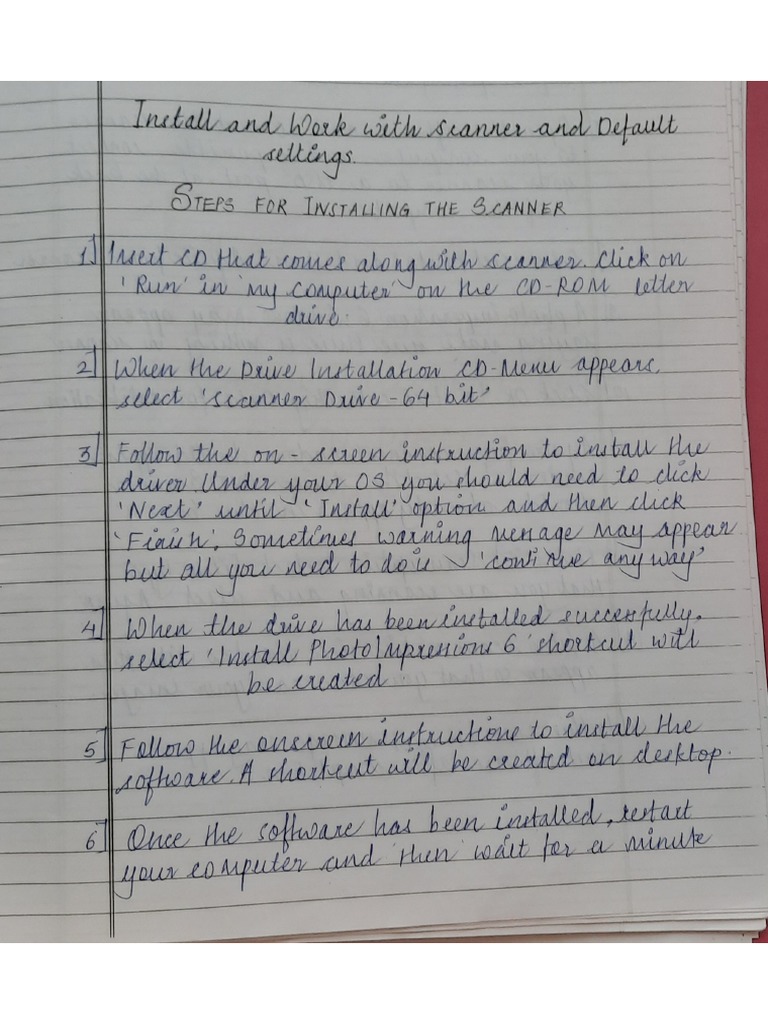 Install and Work with Scanner and Default
settings.
STEPS FOR INSTALLING THE SCANNER
1] Insert CD that comes along with scanner. Click on
'Run' in 'my computer' on the CD-ROM letter
drive.
2] When the Drive Installation CD-Menu appears,
select 'Scanner Drive - 64 bit'
3] Follow the on-screen instruction to install the
driver Under your OS you should need to click
'Next' until 'Install' option and then click
'Finish'. Sometimes warning message may appear
but all you need to do is 'continue any way'
4] When the drive has been installed successfully.
select 'Install PhotoImpressions 6' shortcut will
be created
5] Follow the onscreen instructions to install the
software. A shortcut will be created on desktop.
6] Once the software has been installed, restart
your computer and then wait for a minute